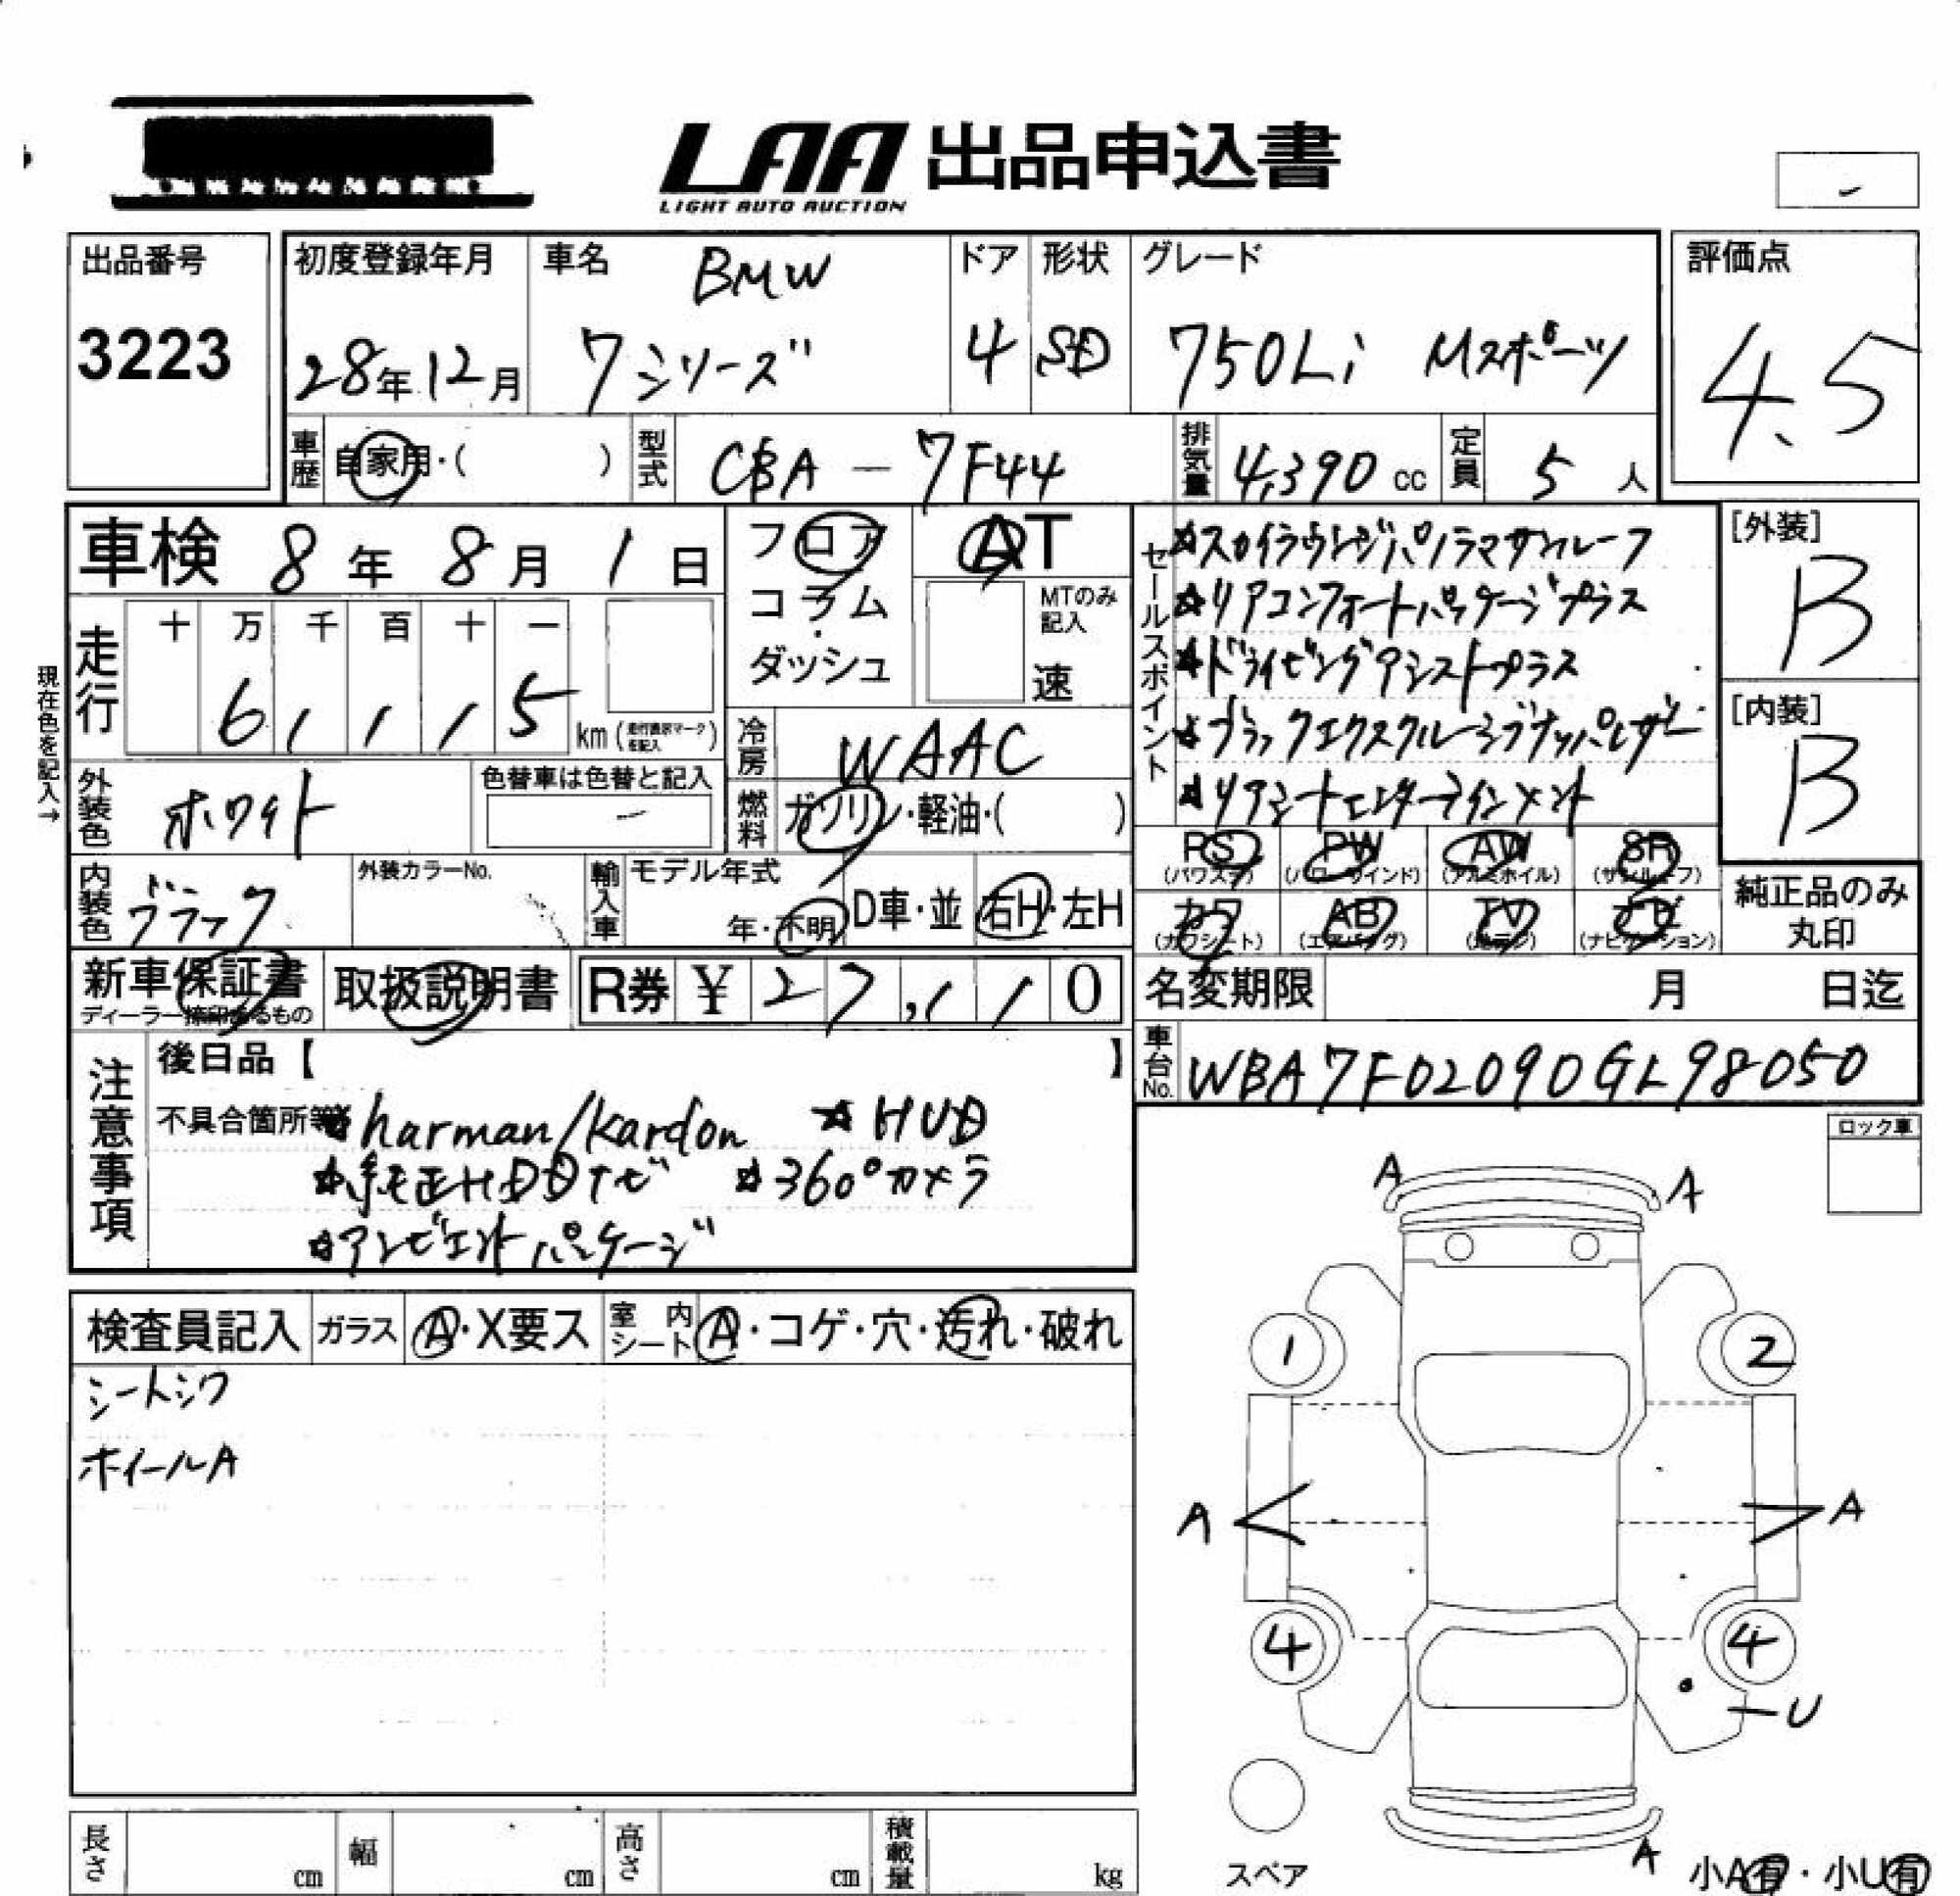 LAA 出品申込書
LIGHT AUTO AUCTION
-
出品番号
3223
初度登録年月
28年12月
車名 BMW
7シリーズ
ドア
4
形状
SD
グレード
750Li Mスポーツ
評価点
4.5
車歴 自家用・( )
型式 CBA-7F44
排気量 4,390cc
定員 5人
車検 8年8月1日
フロア・コラム・ダッシュ
AT
MTのみ記入
速
走行
十 万 千 百 十 一
6 1 1 1 5 km
現在色を記入→
冷房 WAAC
外装色 ホワイト
色替車は色替と記入
-
燃料 ガソリン・軽油・( )
内装色 ブラック
外装カラーNo.
輸入車 モデル年式
年・不明
D車・並
右H・左H
セールスポイント
☆スカイラウンジパノラマサンルーフ
☆リアコンフォートパッケージプラス
☆ドライビングアシストプラス
☆ブラックエクスクルーシブナッパレザー
☆リアシートエンターテインメント
[外装]
B
[内装]
B
PS PW AW SR
(パワステ) (パワーウインド) (アルミホイル) (サンルーフ)
カワ AB TV ナビ
(カワシート) (エアバッグ) (ナビゲーション)
純正品のみ
丸印
新車保証書
ディーラー捺印あるもの
取扱説明書
R券 ¥ 27,110
名変期限 月 日迄
車台No. WBA7F02090GL98050
注意事項
後日品【 】
不具合箇所等
☆harman/kardon ☆HUD
☆純正HDDナビ ☆360°カメラ
☆アンビエントパッケージ
ロック車
検査員記入
ガラス A・X要ス
室内シート A・コゲ・穴・汚れ・破れ
シートシワ
ホイールA
A A
1 2
A A
4 4
U
スペア
A
小A有・小U有
長さ cm
幅 cm
高さ cm
積載量 kg